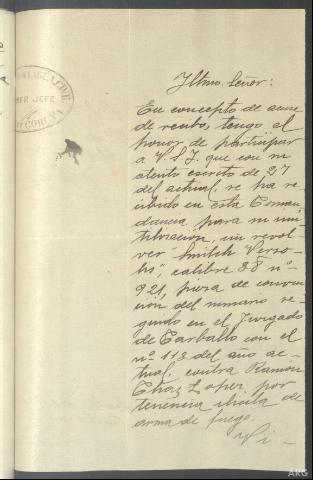 Iltmo. Señor:
En concepto de acuse
de recibo, tengo el
honor de participar
a V.S.I. que con su
atento escrito de 27
del actual, se ha re
cibido en esta Coman
dancia para su inu
tilización, un revol
ver Smitch
calibre 38 nº
921, pieza de convic
ción del sumario se
guido en el Juzgado
de Carballo con el
nº 113 del año ac-
tual, contra Ramón
Lopez por
tenencia ilícita de
arma de fuego.
JEFE
CORUÑA
ARG